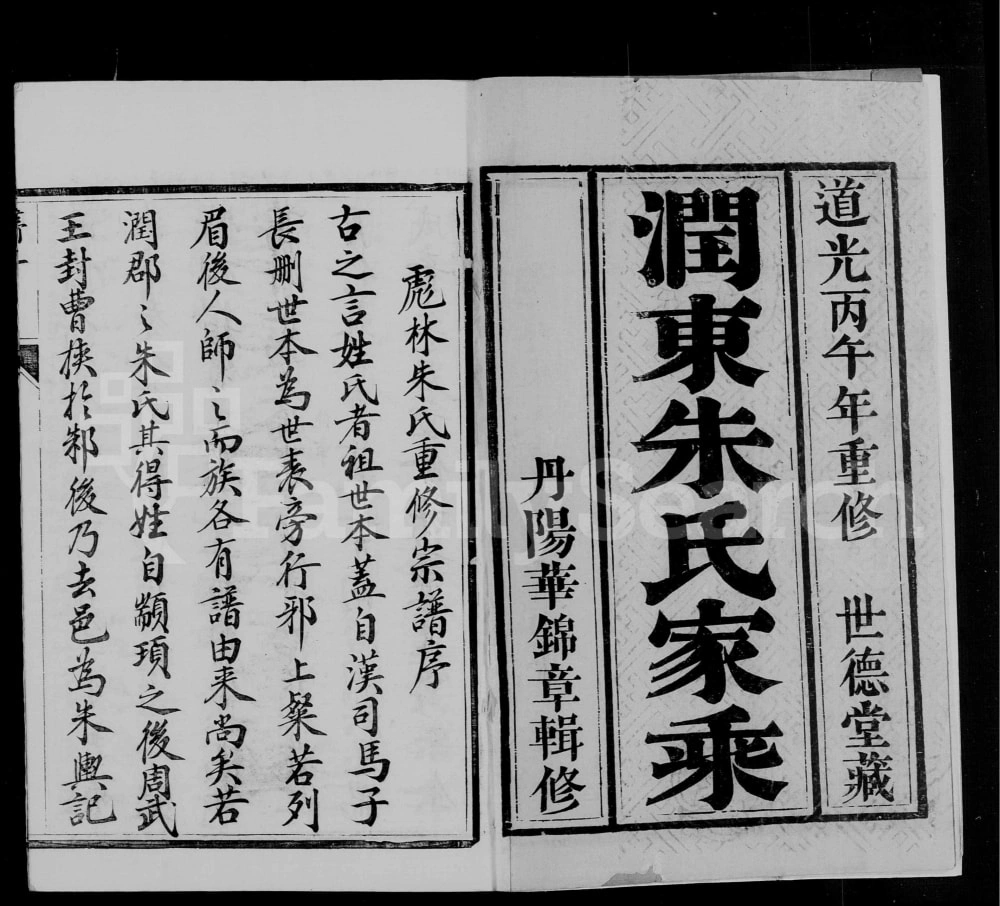 道光丙午年重修 世德堂藏
潤東朱氏家乘
丹陽華錦章輯修
彪林朱氏重修宗譜序
古之言姓氏者祖世本蓋自漢司馬子
長刪世本為世表旁行邪上粲若列
眉後人師之而族各有譜由来尚矣若
潤郡之朱氏其得姓自顓頊之後周武
王封曹挾於邾後乃去邑為朱輿記
FamilySearch